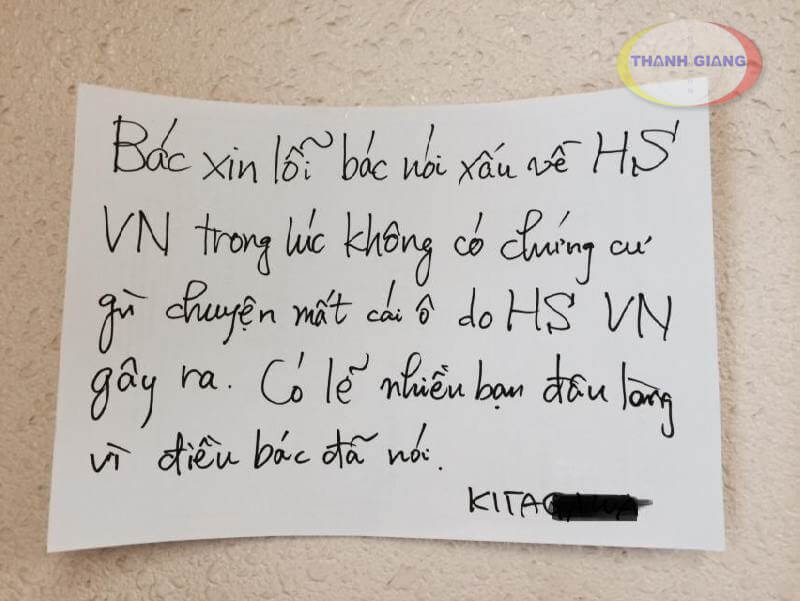 THANH GIANG
Bác xin lỗi bác nói xấu về HS
VN trong lúc không có chứng cứ
gì chuyện mất cái ô do HS VN
gây ra. Có lẽ nhiều bạn đâu lòng
vì điều bác đã nói.
KITA